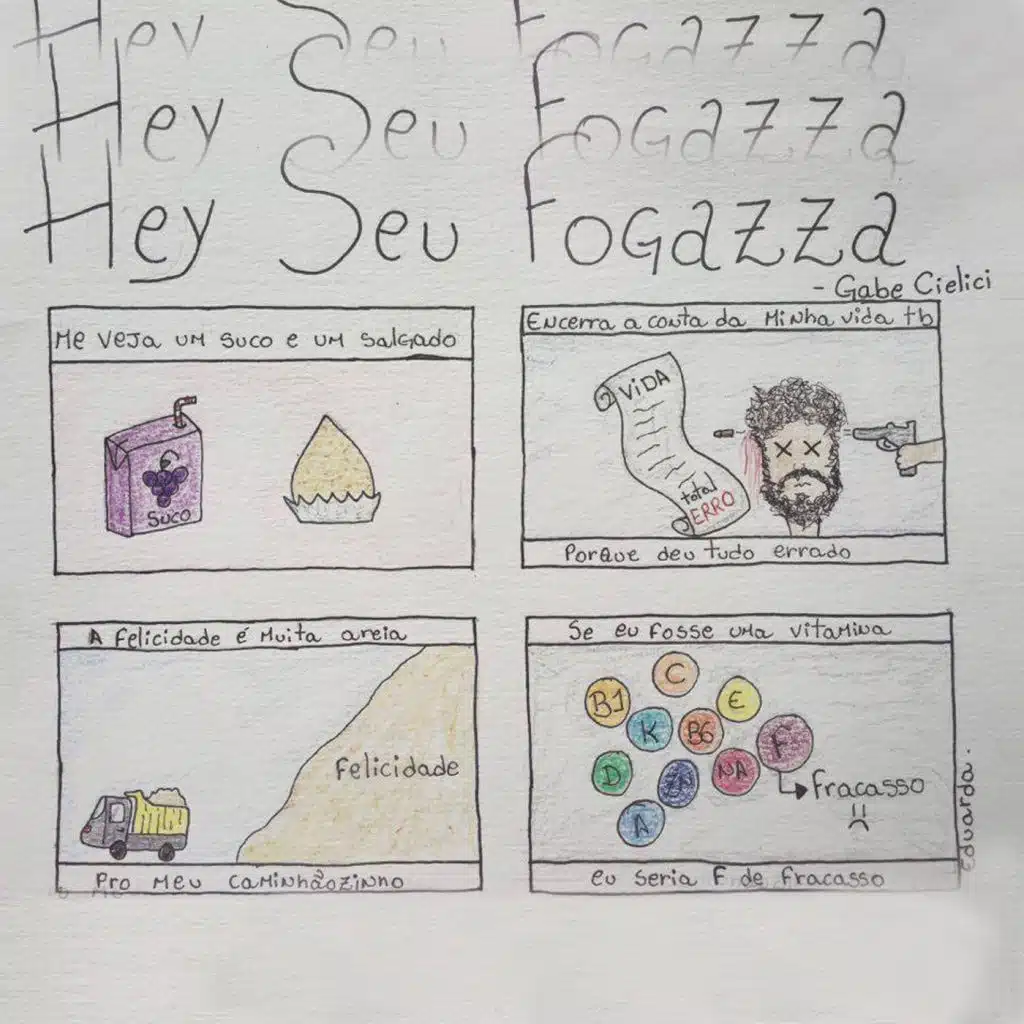 Hey Seu Fogazza
Hey Seu Fogazza
Hey Seu Fogazza
- Gabe Cielici
Me veja um suco e um salgado
Suco
Encerra a conta da minha vida tb
VIDA
total
ERRO
Porque deu tudo errado
A felicidade é muita areia
Felicidade
Pro meu caminhãozinho
Se eu fosse uma vitamina
C
B1
E
K
B6
F
D
ZN
NA
A
Fracasso
eu seria F de fracasso
Eduarda.